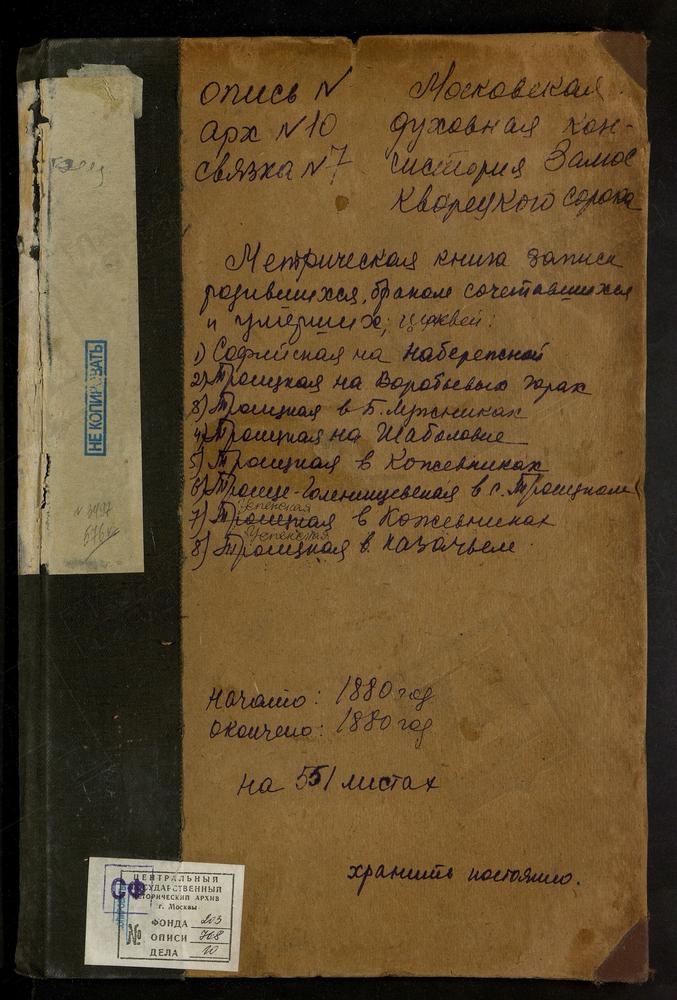 опись N
арх N 10
связка N 7
Московская
духовная кон-
систория Замос
кварецкого сорока
Метрическая книга записи
родившихся, браком сочетавшихся
и умерших, церквей:
1) Софийская на набережной
2) Троицкая на Воробьевых горах
3) Троицкая в Б. Лужниках
4) Троицкая на Шаболовке
5) Троицкая в Кожевниках
6) Троице-Голенищевская в с. Троицком
Успенская
7) Троицкая в Кожевниках
Успенская
8) Троицкая в Казачьем
начато: 1880 год
окончено: 1880 год
на 551 листах
хранить постоянно.
НЕ КОПИРОВАТЬ
676
СФ
ЦЕНТРАЛЬНЫЙ
ГОСУДАРСТВЕННЫЙ
ИСТОРИЧЕСКИЙ АРХИВ
г. Москвы
№
ФОНДА 203
ОПИСИ 768
ДЕЛА 10